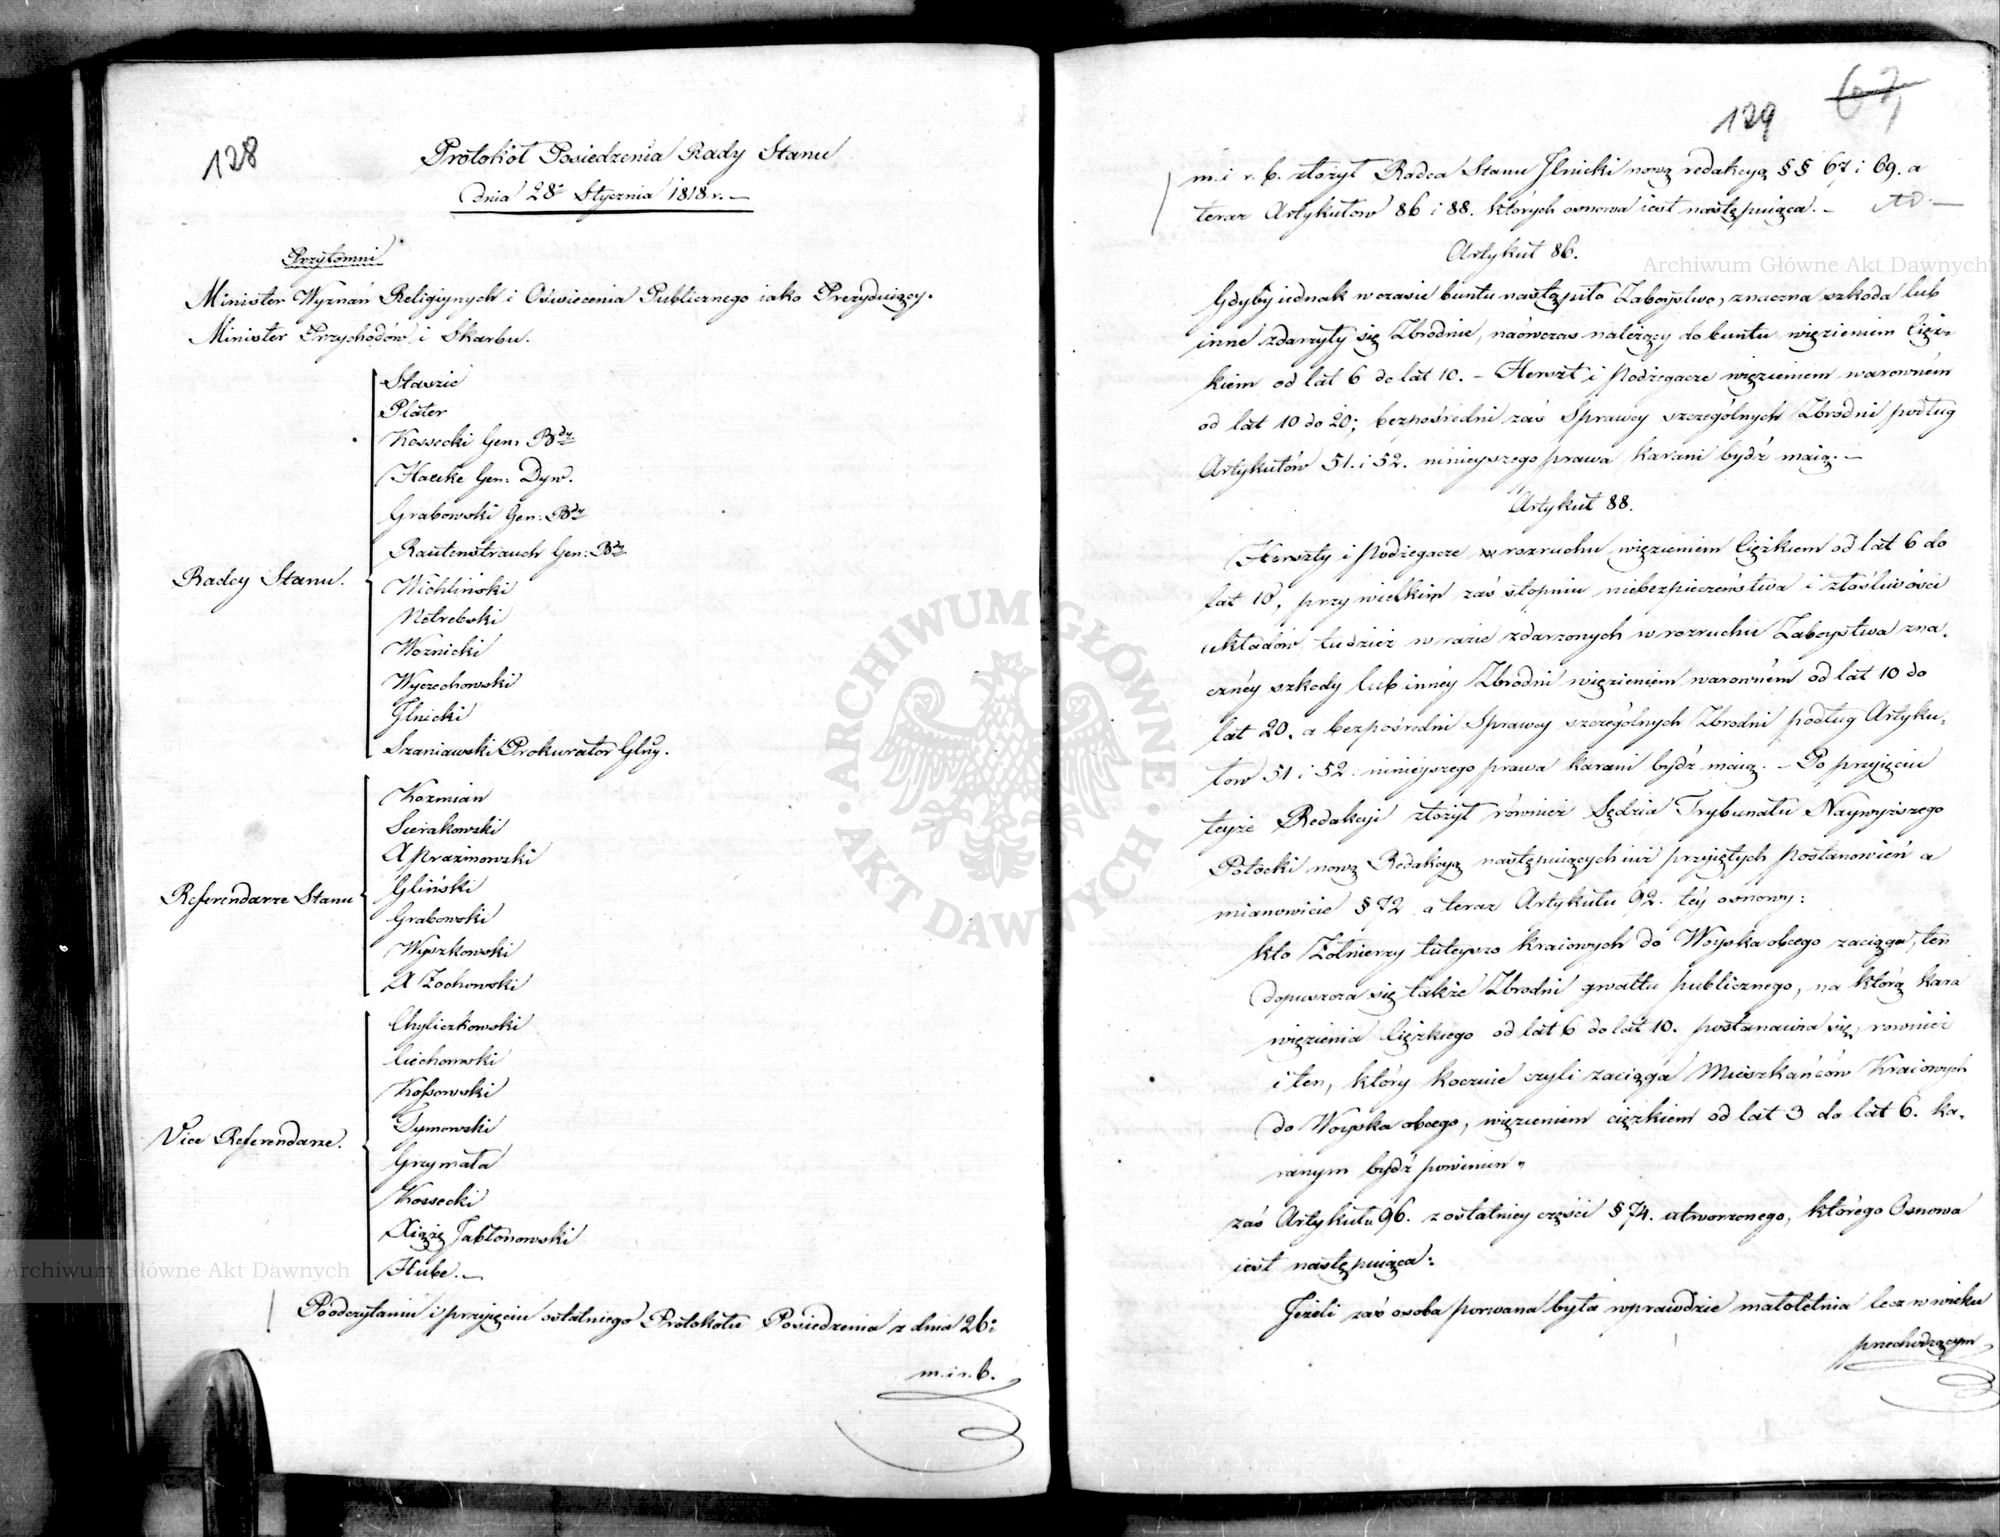 128
Protokół Posiedzenia Rady Stanu
dnia 28º Stycznia 1818 r. —
Przytomni
Minister Wyznań Religiynych i Oświecenia Publicznego iako Prezyduiący.
Minister Przychodów i Skarbu.
Radcy Stanu.
Staszic
Plater
Kossecki Gen: Bdy
Hauke Gen: Dyw.
Grabowski Gen: Bdy
Rautenstrauch Gen: Bdy
Wichliński
Netrebski
Woznicki
Wyczechowski
Ilnicki
Szaniawski Prokurator Glny.
Referendarze Stanu
Kozmian
Sierakowski
X Prazmowski
Gliński
Grabowski
Wyszkowski
X Zochowski
Vice Referendarze.
Chyliczkowski
Ciechomski
Kossowski
Tymowski
Grzymała
Kossecki
Xiąże Jabłonowski
Hube. —
Po odczytaniu i przyięciu ostatniego Protokołu Posiedzenia z dnia 26:
m. i r. b.
129
67
m. i r. b. złożył Radca Stanu Ilnicki nową redakcyą §§ 67 i 69. a
teraz Artykułow 86 i 88. których osnowa iest następuiąca. —
Archiwum Główne Akt Dawnych
Artykuł 86.
Gdyby iednak w czasie buntu nastąpiło Zaboystwo, znaczna szkoda lub
inne zdarzyły się Zbrodnie, naówczas należący do buntu więzieniem Cięż-
kiem od lat 6 do lat 10. — Herszt i Podżegacze więzieniem warowném
od lat 10 do 20; bezpośredni zaś Sprawcy szczególnych Zbrodni podług
Artykułów 51. i 52. ninieyszego prawa karani bydź maią. —
Artykuł 88.
Herszty i Podżegacze rozruchu więzieniem Ciężkiem od lat 6 do
lat 10, przy wielkim zaś stopniu niebezpieczeństwa i złośliwości
układów tudzież w razie zdarzonych w rozruchu Zaboystwa zna-
cznéy szkody lub innéy Zbrodni więzieniem warowném od lat 10 do
lat 20. a bezpośredni Sprawcy szczególnych Zbrodni podług Artyku-
łow 51 i 52. ninieyszego prawa karani bydź maią. — Po przyięciu
teyże Redakcyi złożył również Sędzia Trybunału Naywyższego
Potocki nową Redakcyą następuiących iuż przyiętych postanowień a
mianowicie § 72 a teraz Artykułu 92. téy osnowy:
kto Żołnierzy tuteyszo kraiowych do Woyska obcego zaciąga, ten
dopuszcza się także Zbrodni gwałtu publicznego, na którą kara
więzienia Ciężkiego od lat 6 do lat 10. postanawia się, rownież
i ten, który kocznie czyli zaciąga Mieszkańców Kraiowych
do Woyska obcego, więzieniem ciężkiem od lat 3 do lat 6. ka-
ranym bydź powinien"
zaś Artykułu 96. z ostatniey części § 74. utworzonego, którego Osnowa
iest następuiąca:
Jeżeli zaś osoba porwana była wprawdzie małoletnia lecz w wieku
przechodzącym
ARCHIWUM GŁÓWNE AKT DAWNYCH
Archiwum Główne Akt Dawnych